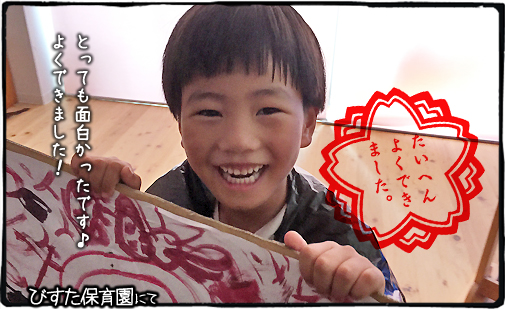 とっても面白かったです♪
よくできました！
たいへん
よくでき
ました。
びすた保育園にて